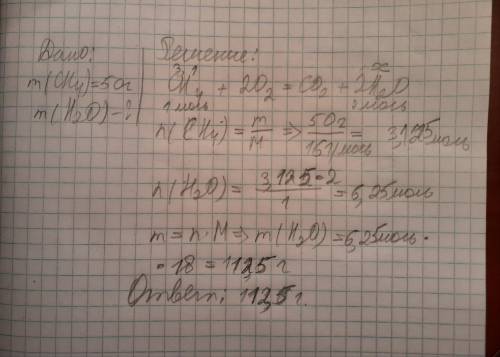 Дано:
m(CH4)=50г
m(H2O)-?
Решение:
x
CH4 + 2O2 = CO2 + 2H2O
1моль 2моль
n(CH4) = m/M => 50г/16г/моль = 3,125моль
n(H2O) = 3,125•2/1 = 6,25моль
m=n•M=>m(H2O)=6,25моль•
•18=112,5г
Ответ: 112,5г.